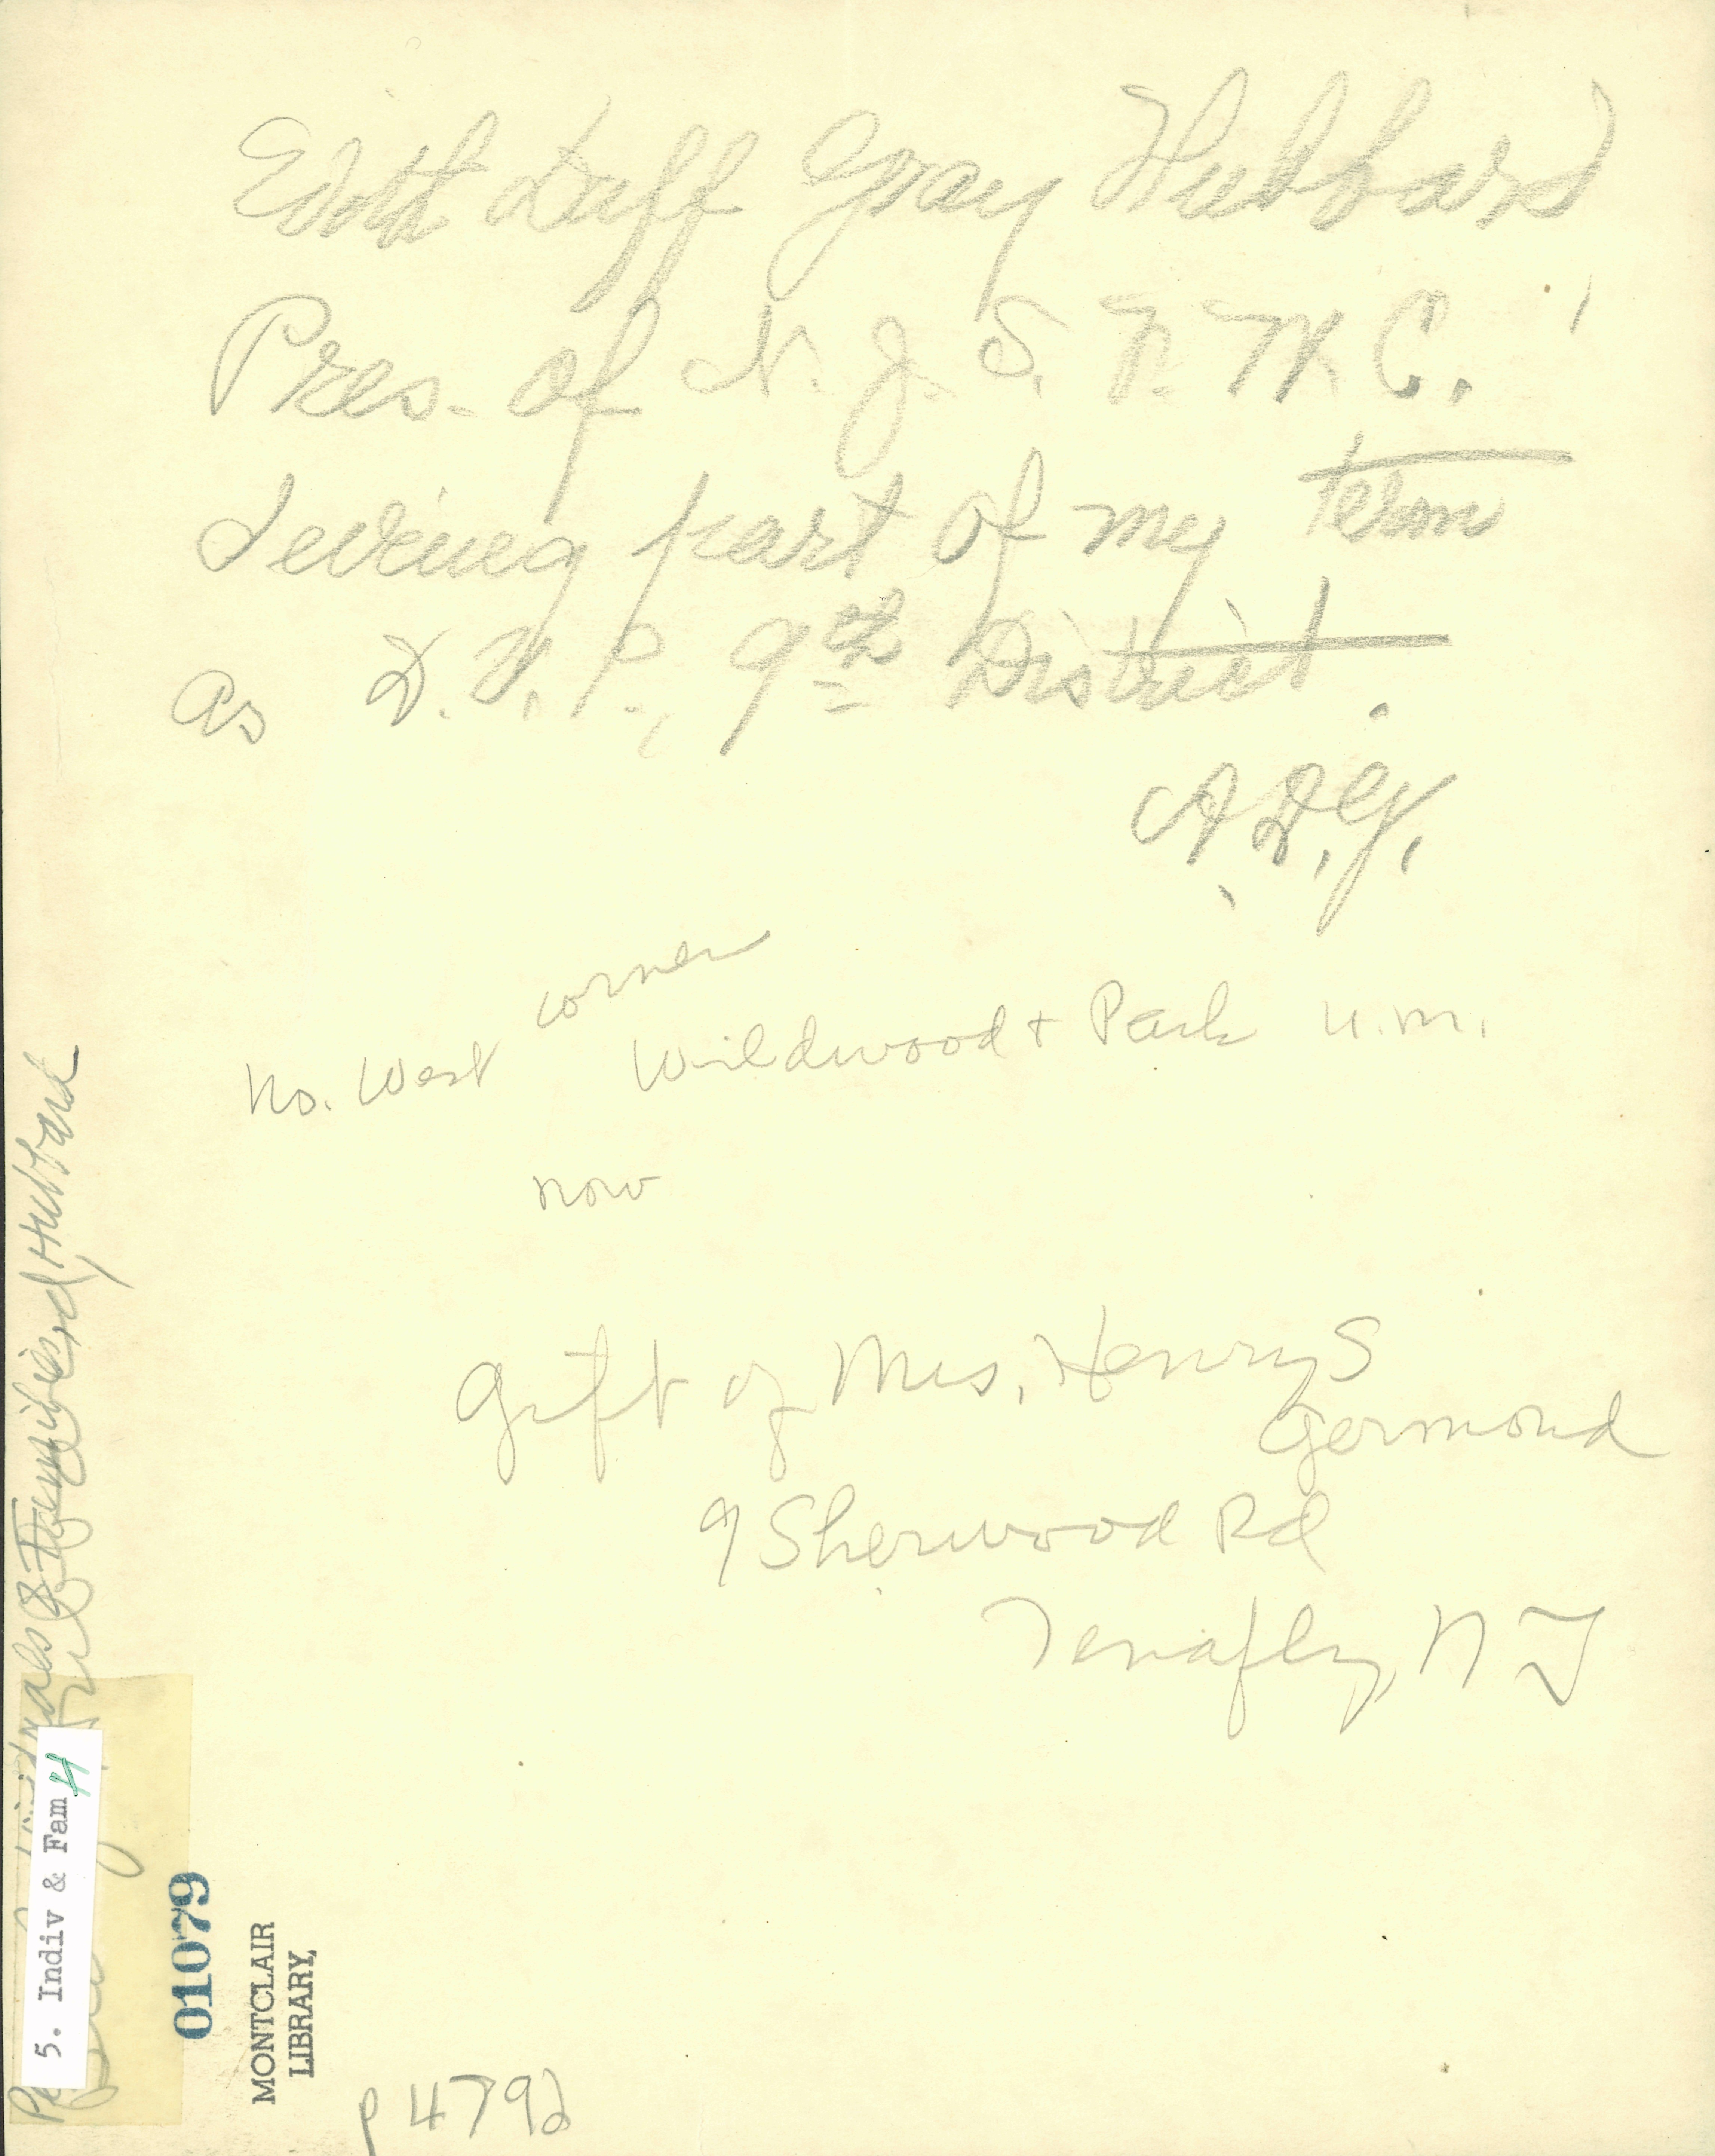 Edith Duff Gray Hubbard
Pres. of N. J. S. F. W. C.
during part of my term
as D. V. P., 9th District.
A. D. G.
corner
No. West Wildwood & Park U.M.
now
Gift of Mrs. Henry S
Germond
9 Sherwood Rd
Tenafly, N J
Families, Hubbard
5. Indiv & Fam H
01079
MONTCLAIR
LIBRARY,
p 4792